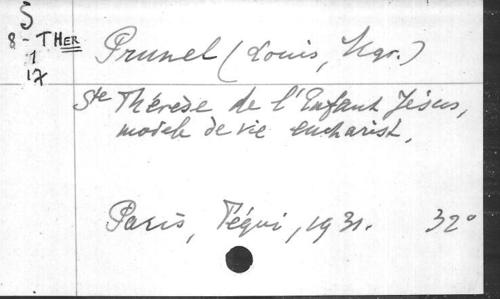 S
8 - THER
1
17
Prunel (Louis, Mgr.)
Ste Thérèse de l'Enfant Jésus,
modèle de vie eucharist.
Paris, Téqui, 1931. 32°